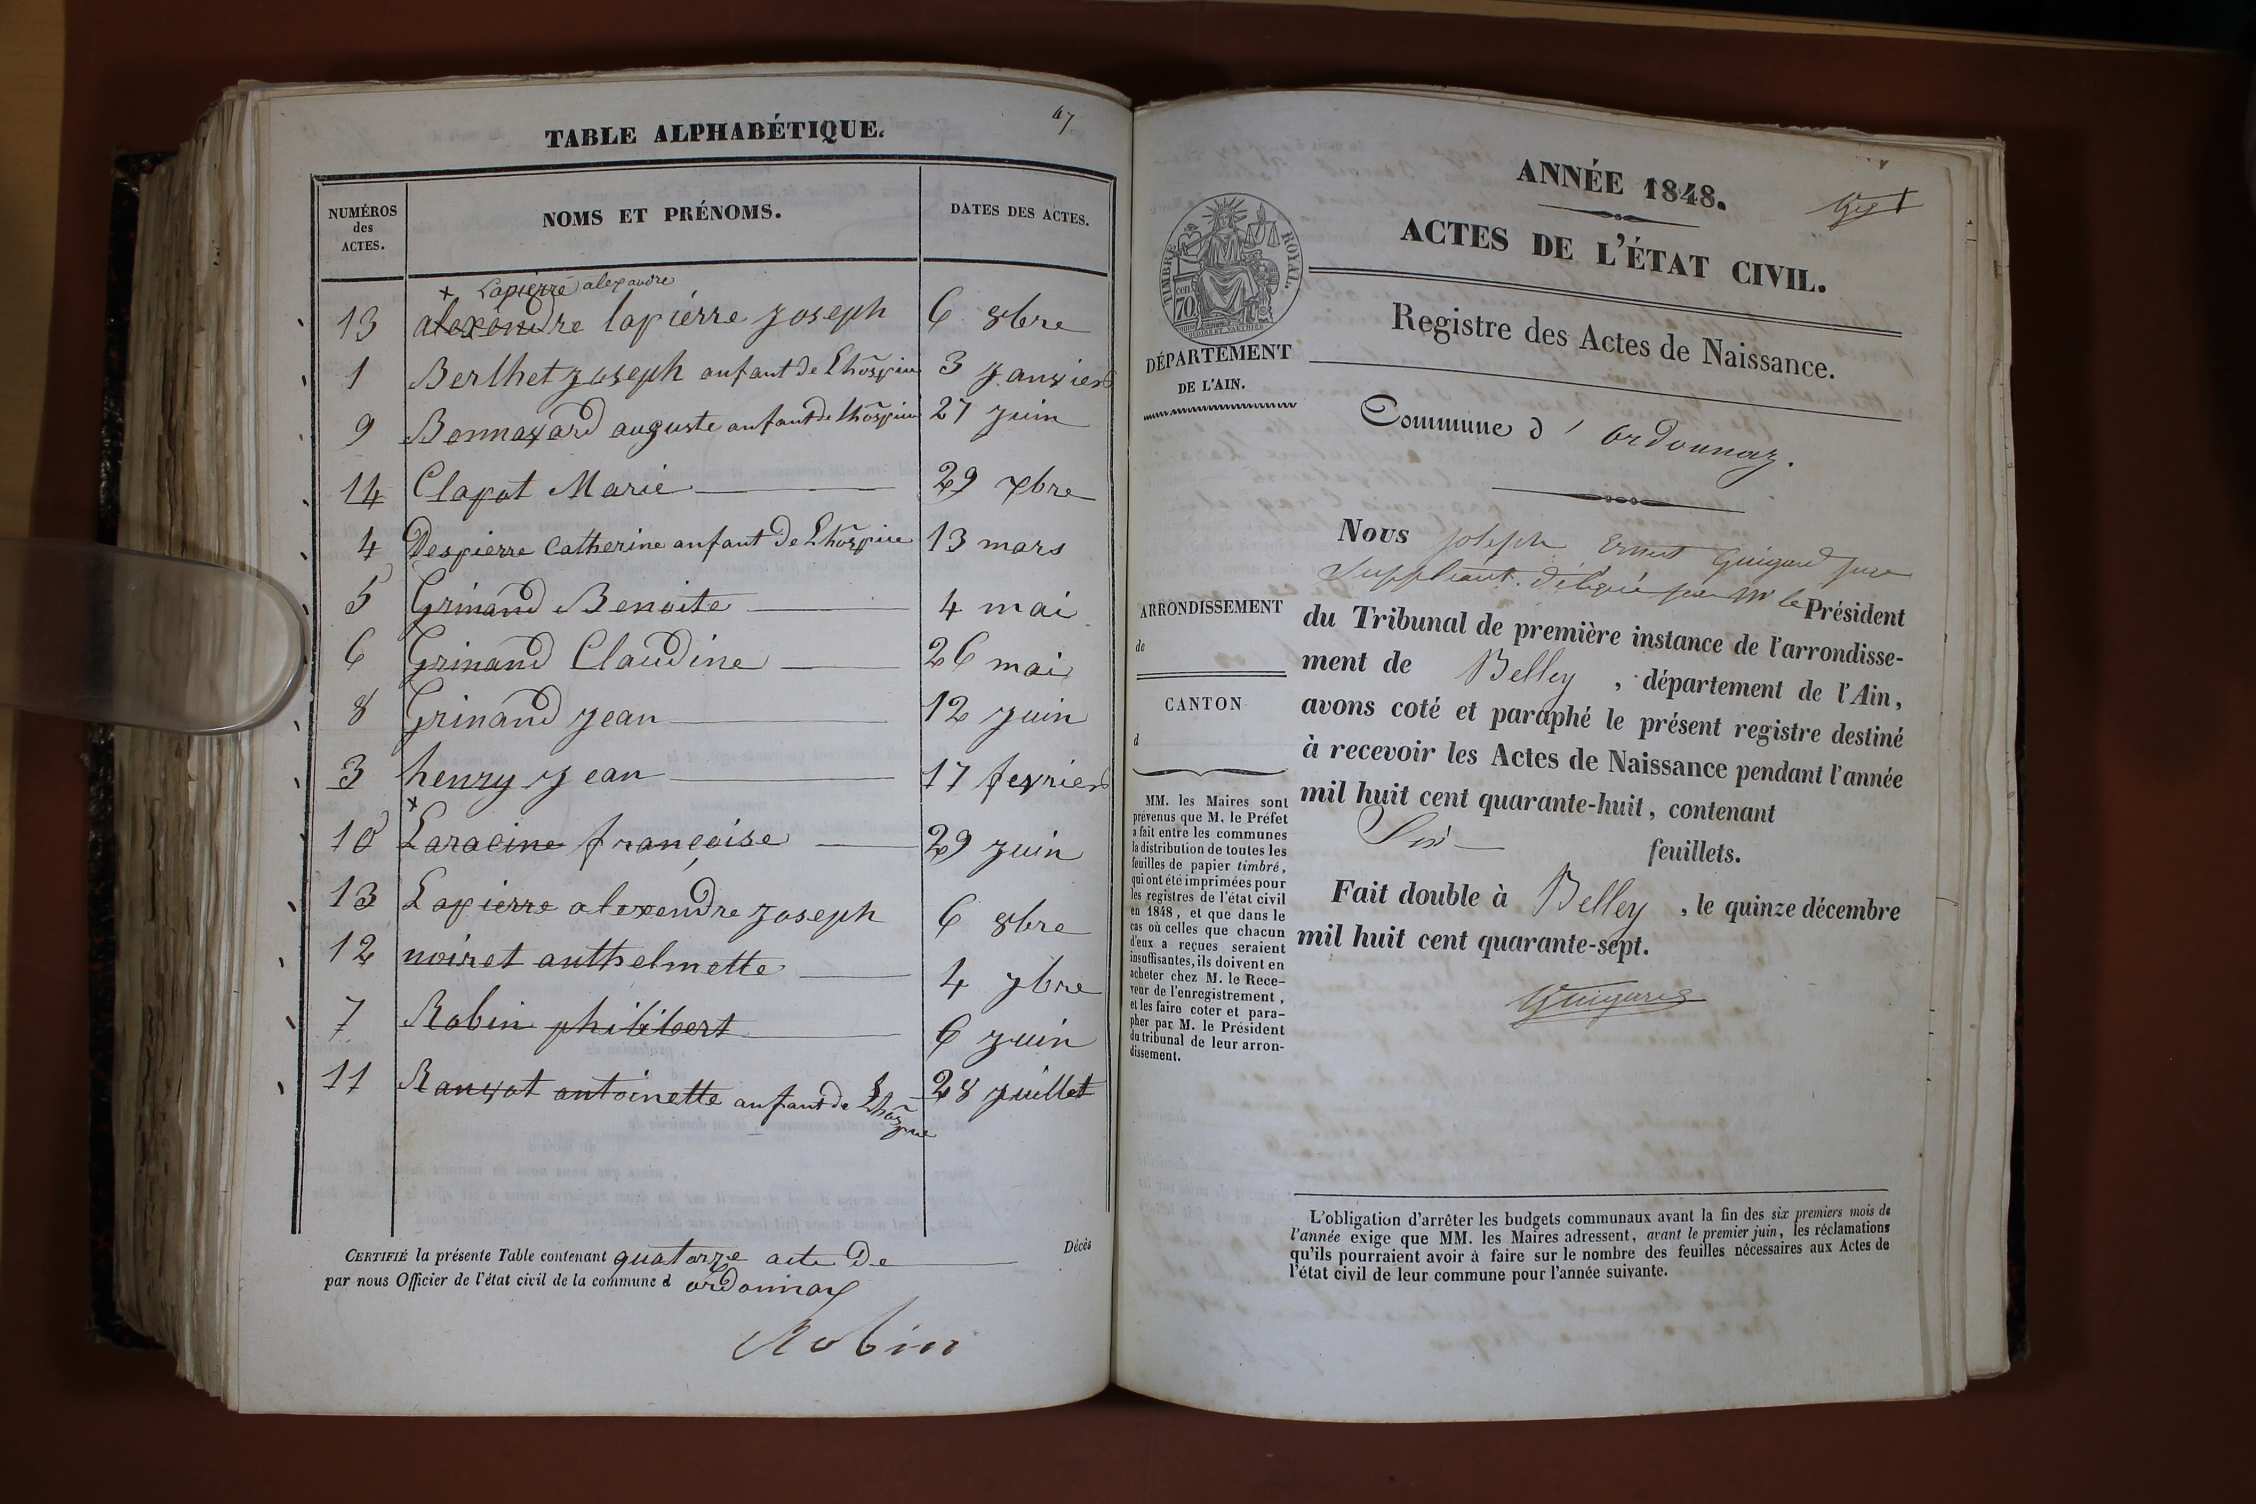 TABLE ALPHABÉTIQUE.
47
NUMÉROS
des
ACTES.
NOMS ET PRÉNOMS.
DATES DES ACTES.
+ Lapierre alexandre
13 alexendre lapierre joseph 6 8bre
1 Berlhet joseph anfant de Lhospice 3 janvier
9 Bonnavard auguste anfant de lhospice 27 juin
14 Clapot Marie 29 xbre
4 Despierre Catherine anfant de Lhospice 13 mars
5 Grinand Benoite 4 mai
6 Grinand Claudine 26 mai
8 Grinand jean 12 juin
3 henry jean 17 fevrier
+
10 Laracine françoise 29 juin
13 Lapierre alexendre joseph 6 8bre
12 noiret anthelmette 4 7bre
7 Robin philibert 6 juin
11 Ranvot antoinette anfant de Lhospice 28 juillet
CERTIFIÉ la présente Table contenant quatorze acte De Décès
par nous Officier de l'état civil de la commune d ordonnax
Robin
ANNÉE 1848.
ACTES DE L'ÉTAT CIVIL.
TIMBRE ROYAL.
cen 70
DÉPARTEMENT
DE L'AIN.
Registre des Actes de Naissance.
Commune d'ordonnaz.
Nous Joseph Ernest Guigard juge
Suppléant délégué par Mr le Président
du Tribunal de première instance de l'arrondisse-
ment de Belley, département de l'Ain,
avons coté et paraphé le présent registre destiné
à recevoir les Actes de Naissance pendant l'année
mil huit cent quarante-huit, contenant
Six feuillets.
Fait double à Belley, le quinze décembre
mil huit cent quarante-sept.
Guigard
ARRONDISSEMENT
de
CANTON
d
MM. les Maires sont
prévenus que M. le Préfet
a fait entre les communes
la distribution de toutes les
feuilles de papier timbré,
qui ont été imprimées pour
les registres de l'état civil
en 1848, et que dans le
cas où celles que chacun
d'eux a reçues seraient
insuffisantes, ils doivent en
acheter chez M. le Rece-
veur de l'enregistrement,
et les faire coter et para-
pher par M. le Président
du tribunal de leur arron-
dissement.
L'obligation d'arrêter les budgets communaux avant la fin des six premiers mois de
l'année exige que MM. les Maires adressent, avant le premier juin, les réclamations
qu'ils pourraient avoir à faire sur le nombre des feuilles nécessaires aux Actes de
l'état civil de leur commune pour l'année suivante.